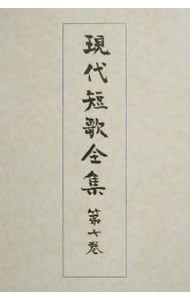 現代短歌全集 第七巻